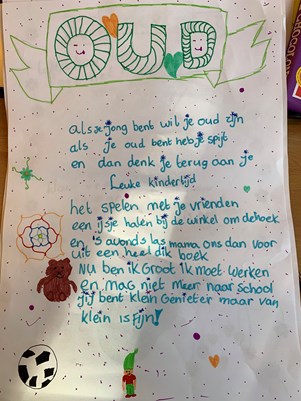 OUD
als je jong bent wil je oud zijn
als je oud bent heb je spijt
en dan denk je terug aan je
Leuke kindertijd
het spelen met je vrienden
een ijsje halen bij de winkel om de hoek
en 's avonds las mama ons dan voor
uit een heel dik boek
NU ben ik Groot ik moet werken
en mag niet meer naar school
jij bent klein Geniet er maar van
klein is Fijn!